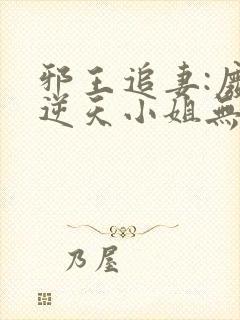 邪王追妻:廢
逆天小姐無
乃屋